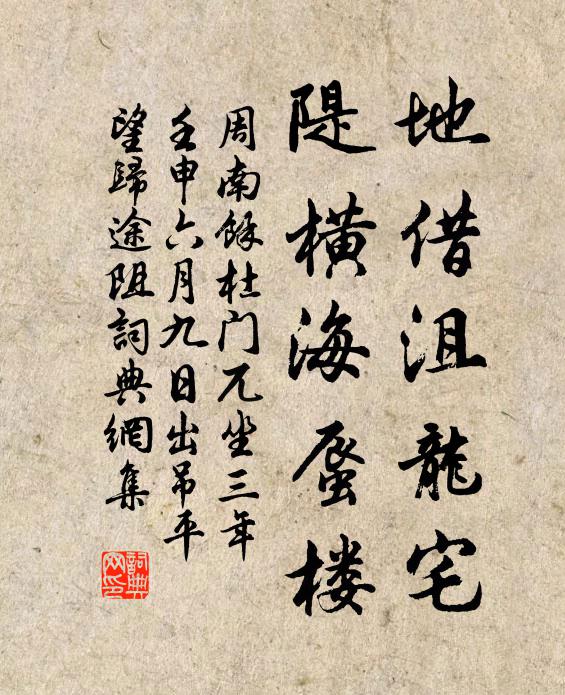 地借沮龍宅
隄橫海蜃楼
周南餘杜门兀坐三年
壬申六月九日出吊平
望歸途阻詞典網集
詞典
网印